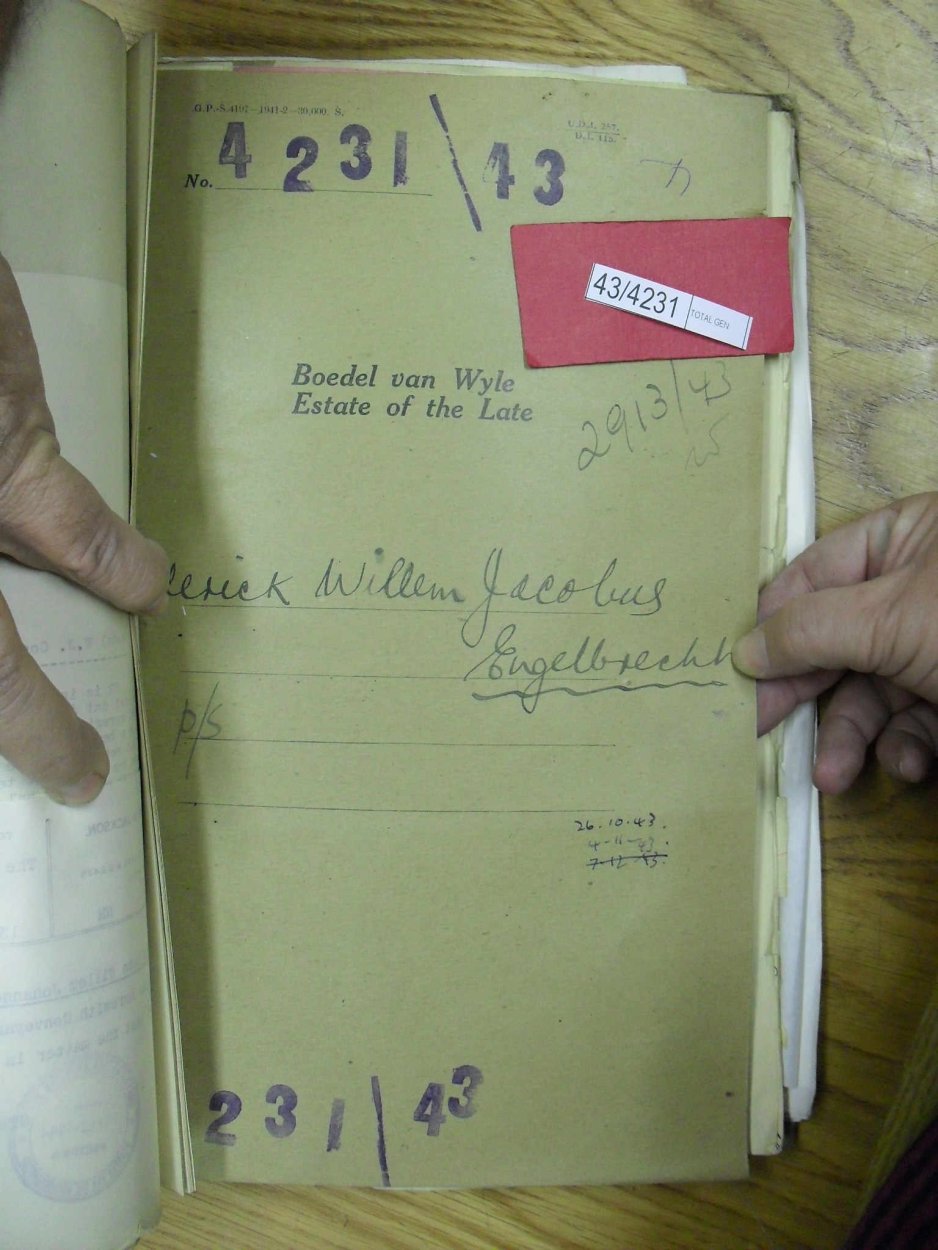 G.P.-S.4197—1941-2—30,000. S.
U.D.J. 257.
D.J. 115.
No. 4231\43
43/4231 TOTAL GEN
Boedel van Wyle
Estate of the Late
2913/43
erick Willem Jacobus
Engelbrecht
p/s
26.10.43.
4-11-43.
7-12-43.
231\43